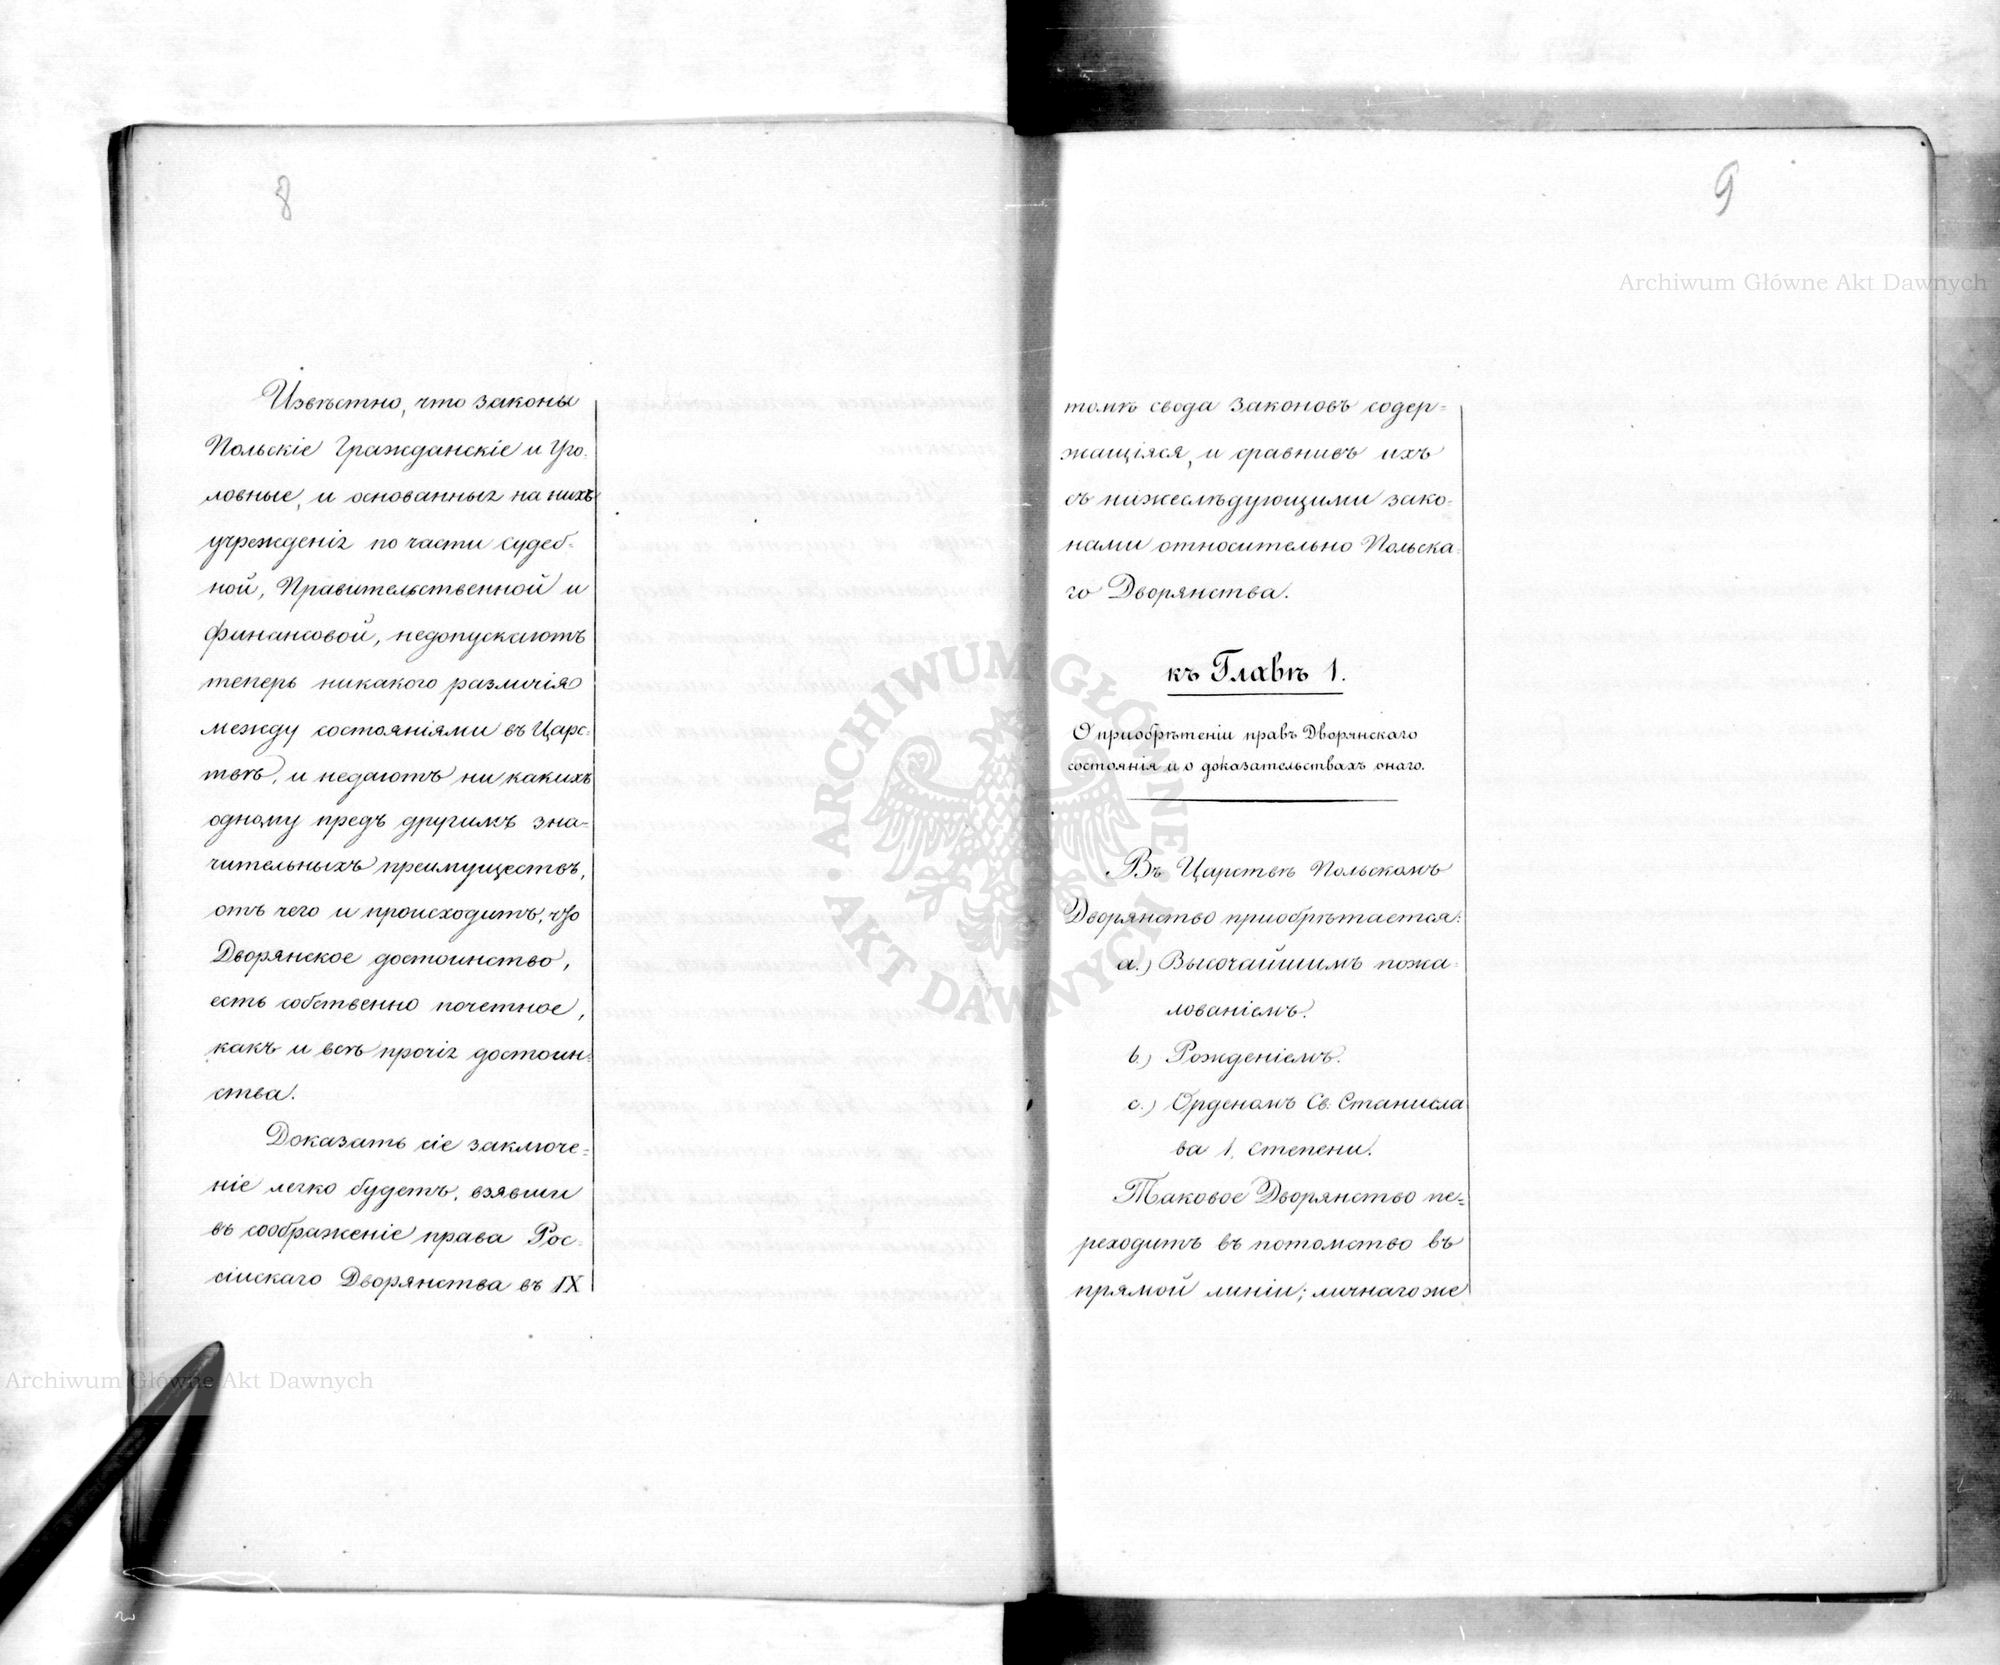 8
Извѣстно, что законы
Польскіе Гражданскіе и Уго-
ловные, и основанныя на нихъ
учрежденія по части судеб-
ной, Правительственной и
финансовой, недопускаютъ
теперь никакого различія
между состояніями въ Царс-
твѣ, и недаютъ ни какихъ
одному предъ другимъ зна-
чительныхъ преимуществъ,
отъ чего и происходитъ, что
Дворянское достоинство,
есть собственно почетное,
какъ и всѣ прочія достоин-
ства.
Доказать сіе заключе-
ніе легко будетъ, взявши
въ соображеніе права Рос-
сійскаго Дворянства въ IX
9
томѣ свода законовъ содер-
жащіяся, и сравнивъ ихъ
съ нижеслѣдующими зако-
нами относительно Польска-
го Дворянства.
къ Главѣ 1.
О приобрѣтеніи правъ Дворянскаго
состоянія и о доказательствахъ онаго.
Въ Царствѣ Польскомъ
Дворянство приобрѣтается:
a.) Высочайшимъ пожа-
лованіемъ.
b.) Рожденіемъ.
c.) Орденомъ Св: Станисла
ва 1. степени.
Таковое Дворянство пе-
реходитъ въ потомство въ
прямой линіи; личнаго же
Archiwum Główne Akt Dawnych
Archiwum Główne Akt Dawnych
ARCHIWUM GŁÓWNE · AKT DAWNYCH ·